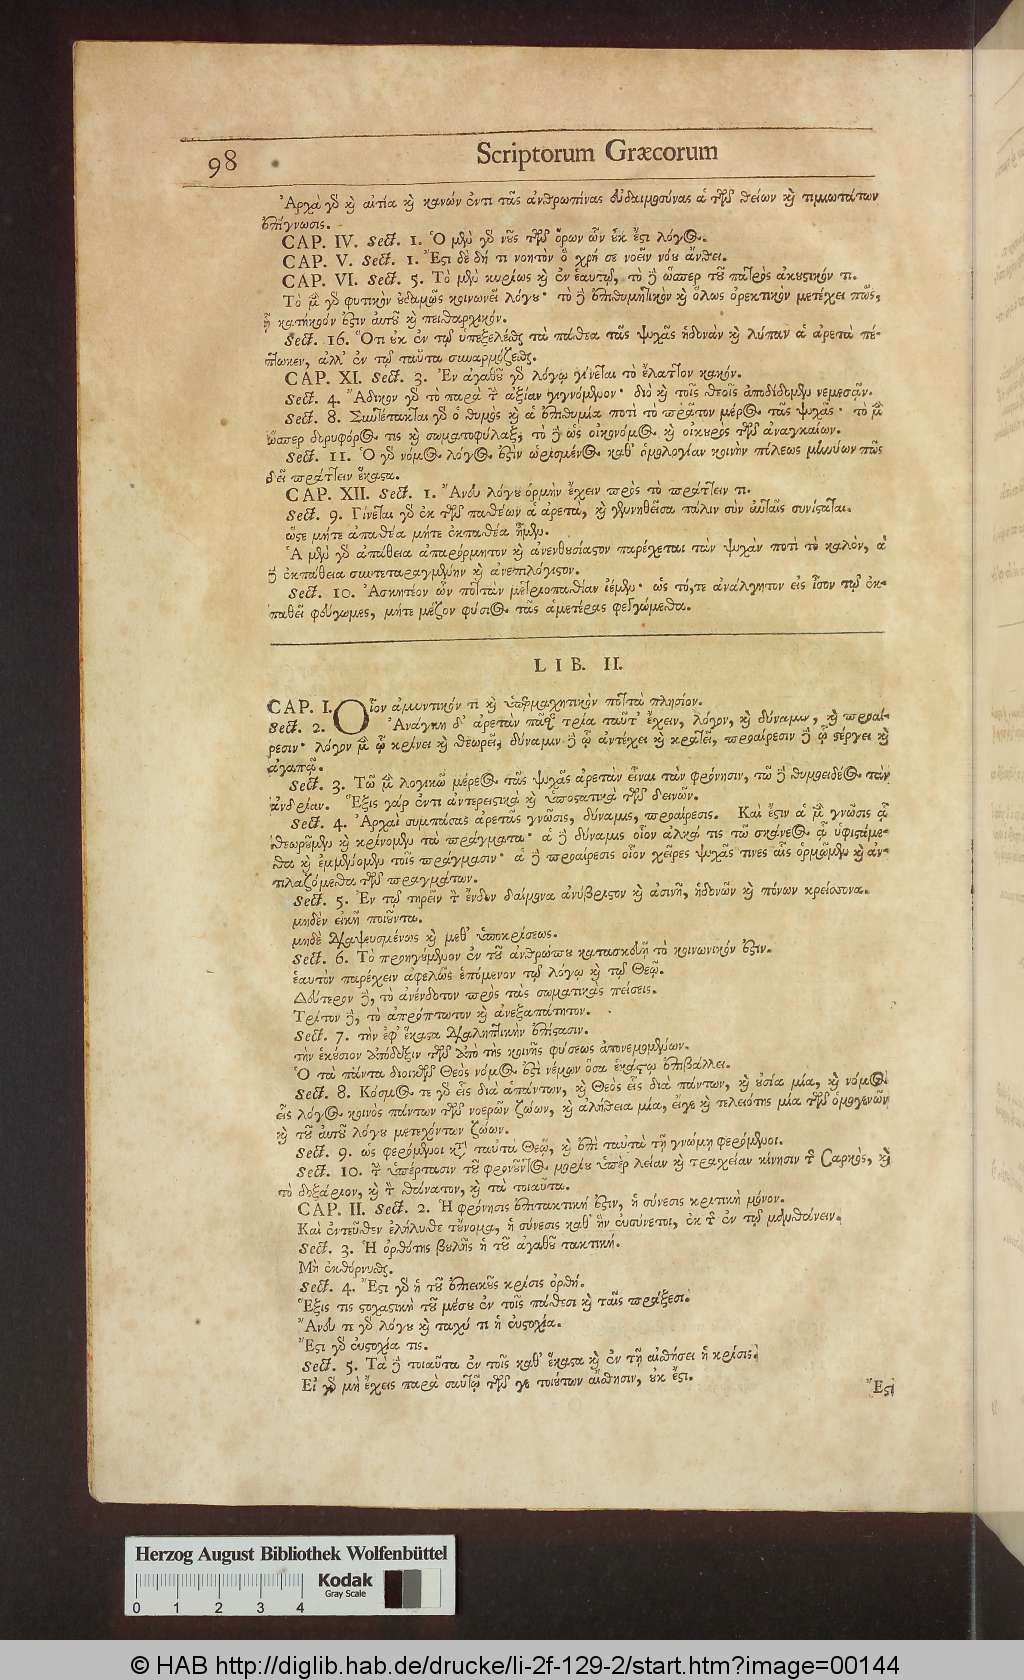 98 Scriptorum Græcorum
Ἀρχὰ γὸ κỳ αἰτία κỳ κανών ἐντι τᾶς ἀνθρωπίνας εὐδαιμοσύνας ἁ τῶν θείων κỳ τιμιωτάτων
ἐπίγνωσις.
CAP. IV. Sect. 1. Ὁ μὲν γὸ νοῦς τῶν ὅρων ὧν οὐκ ἔςι λόγος.
CAP. V. Sect. 1. Ἔςι δὲ δή τι νοητὸν ὃ χρή σε νοεῖν νόου ἄνθει.
CAP. VI. Sect. 5. Τὸ μὲν κυρίως κỳ ἐν ἑαυτῷ, τὸ δὲ ὥσπερ τοῦ πατρὸς ἀκουςικόν τι.
Τὸ μὲν γὸ φυτικὸν οὐδαμῶς κοινωνεῖ λόγου· τὸ δὲ ἐπιθυμητικὸν κỳ ὅλως ὀρεκτικὸν μετέχει πῶς,
ᾗ κατήκοόν ἐςιν αὐτοῦ κỳ πειθαρχικόν.
Sect. 16. Ὅτι οὐκ ἐν τῷ ὑπεξελέσθαι τὰ πάθεα τᾶς ψυχᾶς ἡδονὰν κỳ λύπαν ἁ ἀρετὰ πέ-
πτωκεν, ἀλλ' ἐν τῷ ταῦτα συναρμόζεσθαι.
CAP. XI. Sect. 3. Ἐν ἀγαθοῦ γὸ λόγῳ γίνεται τὸ ἔλαττον κακόν.
Sect. 4. Ἄδικον γὸ τὸ παρὰ τὴν ἀξίαν γιγνόμενον· διὸ κỳ τοῖς θεοῖς ἀποδίδομεν νεμεσᾶν.
Sect. 8. Συντέτακται γὸ ὁ θυμὸς κỳ ἁ ἐπιθυμία ποτὶ τὸ πρᾶτον μέρος τᾶς ψυχᾶς· τὸ μὲν
ὥσπερ δορυφόρος τις κỳ σωματοφύλαξ, τὸ δὲ ὡς οἰκονόμος κỳ οἰκουρὸς τῶν ἀναγκαίων.
Sect. 11. Ὁ γὸ νόμος λόγος ἐςὶν ὡρισμένος καθ' ὁμολογίαν κοινὴν πόλεως μηνύων πῶς
δεῖ πράττειν ἕκαςα.
CAP. XII. Sect. 1. Ἄνευ λόγου ὁρμὴν ἔχειν πρὸς τὸ πράττειν τι.
Sect. 9. Γίνεται γὸ ἐκ τῶν παθέων ἁ ἀρετὰ, κỳ γεννηθεῖσα πάλιν σὺν αὐταῖς συνίςαται.
ὥςε μήτε ἀπαθέα μήτε ἐκπαθέα ἦμεν.
Ἁ μὲν γὸ ἀπάθεια ἀπαρόρμητον κỳ ἀνενθουσίαςον παρέχεται τὰν ψυχὰν ποτὶ τὸ καλὸν, ἁ
δὲ ἐκπάθεια συντεταραγμένην κỳ ἀνεπιλόγιςον.
Sect. 10. Ἀσκητέον ὦν ποττὰν μετριοπαθίαν ἰέμεν· ὡς τό,τε ἀνάλγητον εἰς ἶσον τῷ ἐκ-
παθεῖ φεύγωμες, μήτε μέζον φύσιος τᾶς ἁμετέρας φθεγγώμεθα.
LIB. II.
CAP. I. Οἷον ἀμυντικόν τι κỳ ὑπερμαχητικὸν ποττὰ πλησίον.
Sect. 2. Ἀνάγκη δ' ἀρετὰν πᾶσαν τρία ταῦτ' ἔχειν, λόγον, κỳ δύναμιν, κỳ προαί-
ρεσιν· λόγον μὲν ᾧ κρίνει κỳ θεωρεῖ, δύναμιν δὲ ᾧ ἀντέχει κỳ κρατεῖ, προαίρεσιν δὲ ᾧ ςέργει κỳ
ἀγαπῷ.
Sect. 3. Τῶ μὲν λογικῶ μέρεος τᾶς ψυχᾶς ἀρετὰν εἶναι τὰν φρόνησιν, τῶ δὲ θυμοειδέος τὰν
ἀνδρίαν. Ἕξις γάρ ἐντι ἀντερειςικὰ κỳ ὑποςατικὰ τῶν δεινῶν.
Sect. 4. Ἀρχαὶ συμπάσας ἀρετᾶς γνῶσις, δύναμις, προαίρεσις. Καὶ ἔςιν ἁ μὲν γνῶσις ᾇ
θεωροῦμεν κỳ κρίνομεν τὰ πράγματα· ἁ δὲ δύναμις οἷον ἀλκά τις τῶ σκάνεος ᾇ ὑφιςάμε-
θα κỳ ἐμμένομεν τοῖς πράγμασιν· ἁ δὲ προαίρεσις οἷον χεῖρες ψυχᾶς τινες αἷς ὁρμῶμεν κỳ ἀν-
τιλαζόμεθα τῶν πραγμάτων.
Sect. 5. Ἐν τῷ τηρεῖν τὸν ἔνδον δαίμονα ἀνύβριςον κỳ ἀσινῆ, ἡδονῶν κỳ πόνων κρείσσονα.
μηδὲν εἰκῆ ποιοῦντα.
μηδὲ διαψευσμένως κỳ μεθ' ὑποκρίσεως.
Sect. 6. Τὸ προηγούμενον ἐν τοῦ ἀνθρώπου κατασκευῇ τὸ κοινωνικόν ἐςιν.
ἑαυτὸν παρέχειν ἀφελῶς ἑπόμενον τῷ λόγῳ κỳ τῷ Θεῷ.
Δεύτερον δὲ, τὸ ἀνένδοτον πρὸς τὰς σωματικὰς πείσεις.
Τρίτον δὲ, τὸ ἀπρόπτωτον κỳ ἀνεξαπάτητον.
Sect. 7. τὴν ἐφ' ἕκαςα διαληπτικὴν ἐπίςασιν.
τὴν ἑκούσιον ἀπόδεξιν τῶν ἀπὸ τῆς κοινῆς φύσεως ἀπονεμομένων.
Ὁ τὰ πάντα διοικῶν Θεὸς νόμος ἐςὶ νέμων ὅσα ἑκάςῳ ἐπιβάλλει.
Sect. 8. Κόσμος τε γὸ εἷς διὰ ἁπάντων, κỳ Θεὸς εἷς διὰ πάντων, κỳ οὐσία μία, κỳ νόμος
εἷς λόγος κοινὸς πάντων τῶν νοερῶν ζώων, κỳ ἀλήθεια μία, εἴγε κỳ τελειότης μία τῶν ὁμογενῶν
κỳ τοῦ αὐτοῦ λόγου μετεχόντων ζώων.
Sect. 9. ὡς φερόμενοι κατὰ ταὐτὰ Θεῷ, κỳ ἐπὶ ταὐτὰ τῇ γνώμῃ φερόμενοι.
Sect. 10. τὴν ὑπέρτασιν τοῦ φρονοῦντος μορίου ὑπὲρ λείαν κỳ τραχεῖαν κίνησιν τῆς Σαρκὸς, κỳ
τὸ δοξάριον, κỳ τὸν θάνατον, κỳ τὰ τοιαῦτα.
CAP. II. Sect. 2. Ἡ φρόνησις ἐπιτακτική ἐςιν, ἡ σύνεσις κριτικὴ μόνον.
Καὶ ἐντεῦθεν ἐλήλυθε τοὔνομα, ἡ σύνεσις καθ' ἣν εὐσύνετοι, ἐκ τῆς ἐν τῷ μανθάνειν.
Sect. 3. Ἡ ὀρθότης βουλῆς ἡ τοῦ ἀγαθοῦ τακτική.
Μὴ ἐκθόρνυσθαι.
Sect. 4. Ἔςι γὸ ἡ τοῦ ἐπιεικοῦς κρίσις ὀρθή.
Ἕξις τις ςοχαςικὴ τοῦ μέσου ἐν τοῖς πάθεσι κỳ ταῖς πράξεσι.
Ἄνευ τε γὸ λόγου κỳ ταχύ τι ἡ εὐςοχία.
Ἔςι γὸ εὐςοχία τις.
Sect. 5. Τὰ δὲ τοιαῦτα ἐν τοῖς καθ' ἕκαςα κỳ ἐν τῇ αἰσθήσει ἡ κρίσις.
Εἰ γὸ μὴ ἔχεις παρὰ σαυτῷ τῶν γε τοιούτων αἴσθησιν, οὐκ ἔςι.
Ἔςι
Herzog August Bibliothek Wolfenbüttel
Kodak
Gray Scale
0 1 2 3 4
© HAB http://diglib.hab.de/drucke/li-2f-129-2/start.htm?image=00144